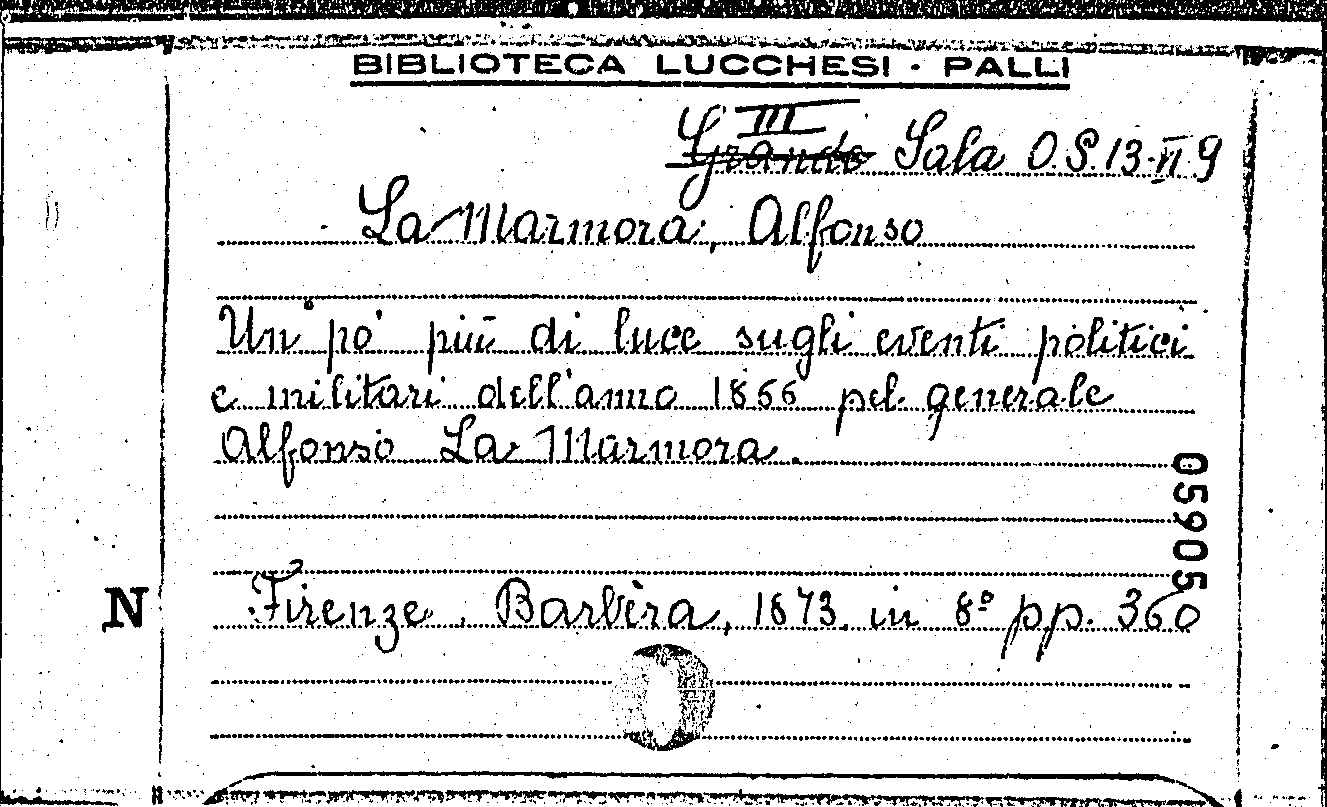 BIBLIOTECA LUCCHESI - PALLI
III
Grande Sala O.S. 13. VI. 9
La Marmora, Alfonso
Un po' più di luce sugli eventi politici
e militari dell'anno 1866 pel generale
Alfonso La Marmora.
05905
N
Firenze, Barbèra, 1873. in 8º pp. 360